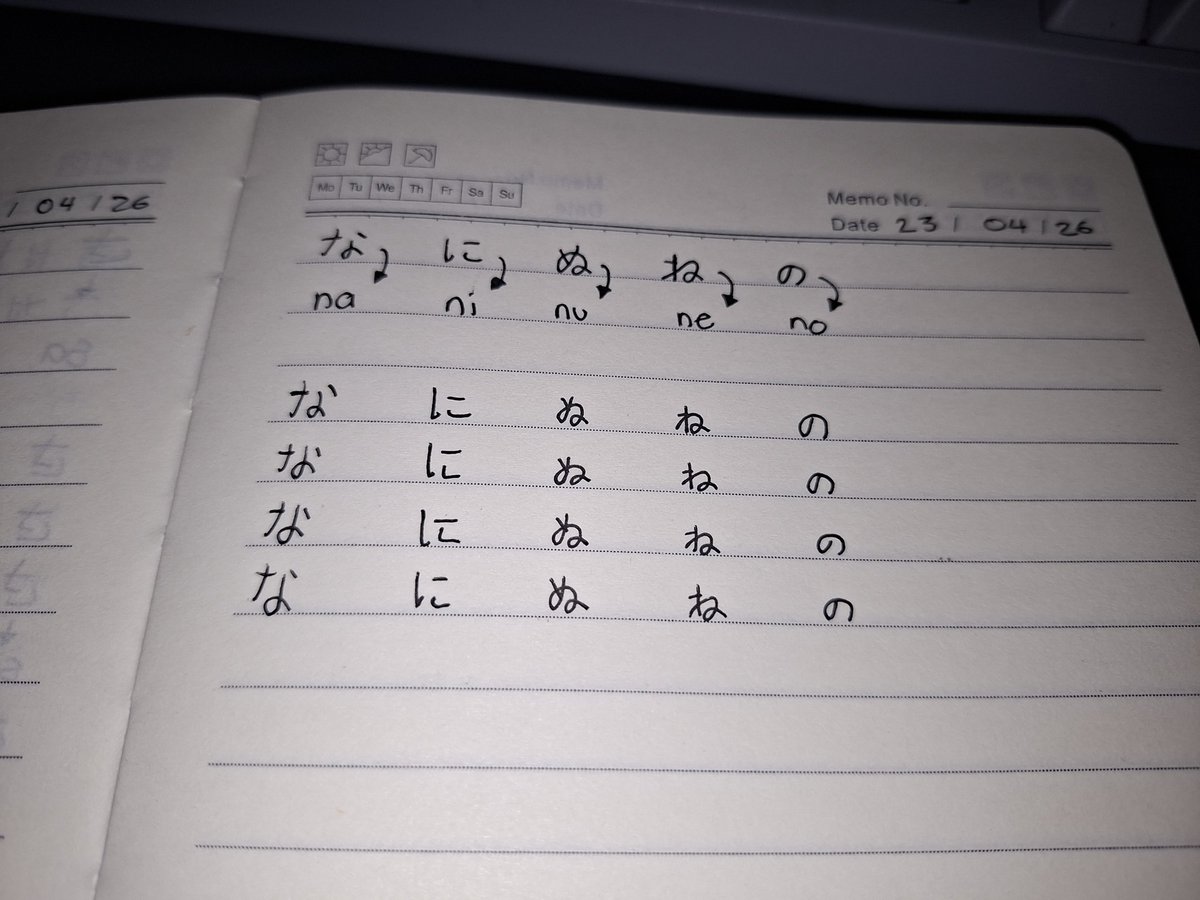 / 04 / 26
Mo Tu We Th Fr Sa Su
Memo No.
Date 23 / 04 / 26
な に ぬ ね の
na ni nu ne no
な に ぬ ね の
な に ぬ ね の
な に ぬ ね の
な に ぬ ね の